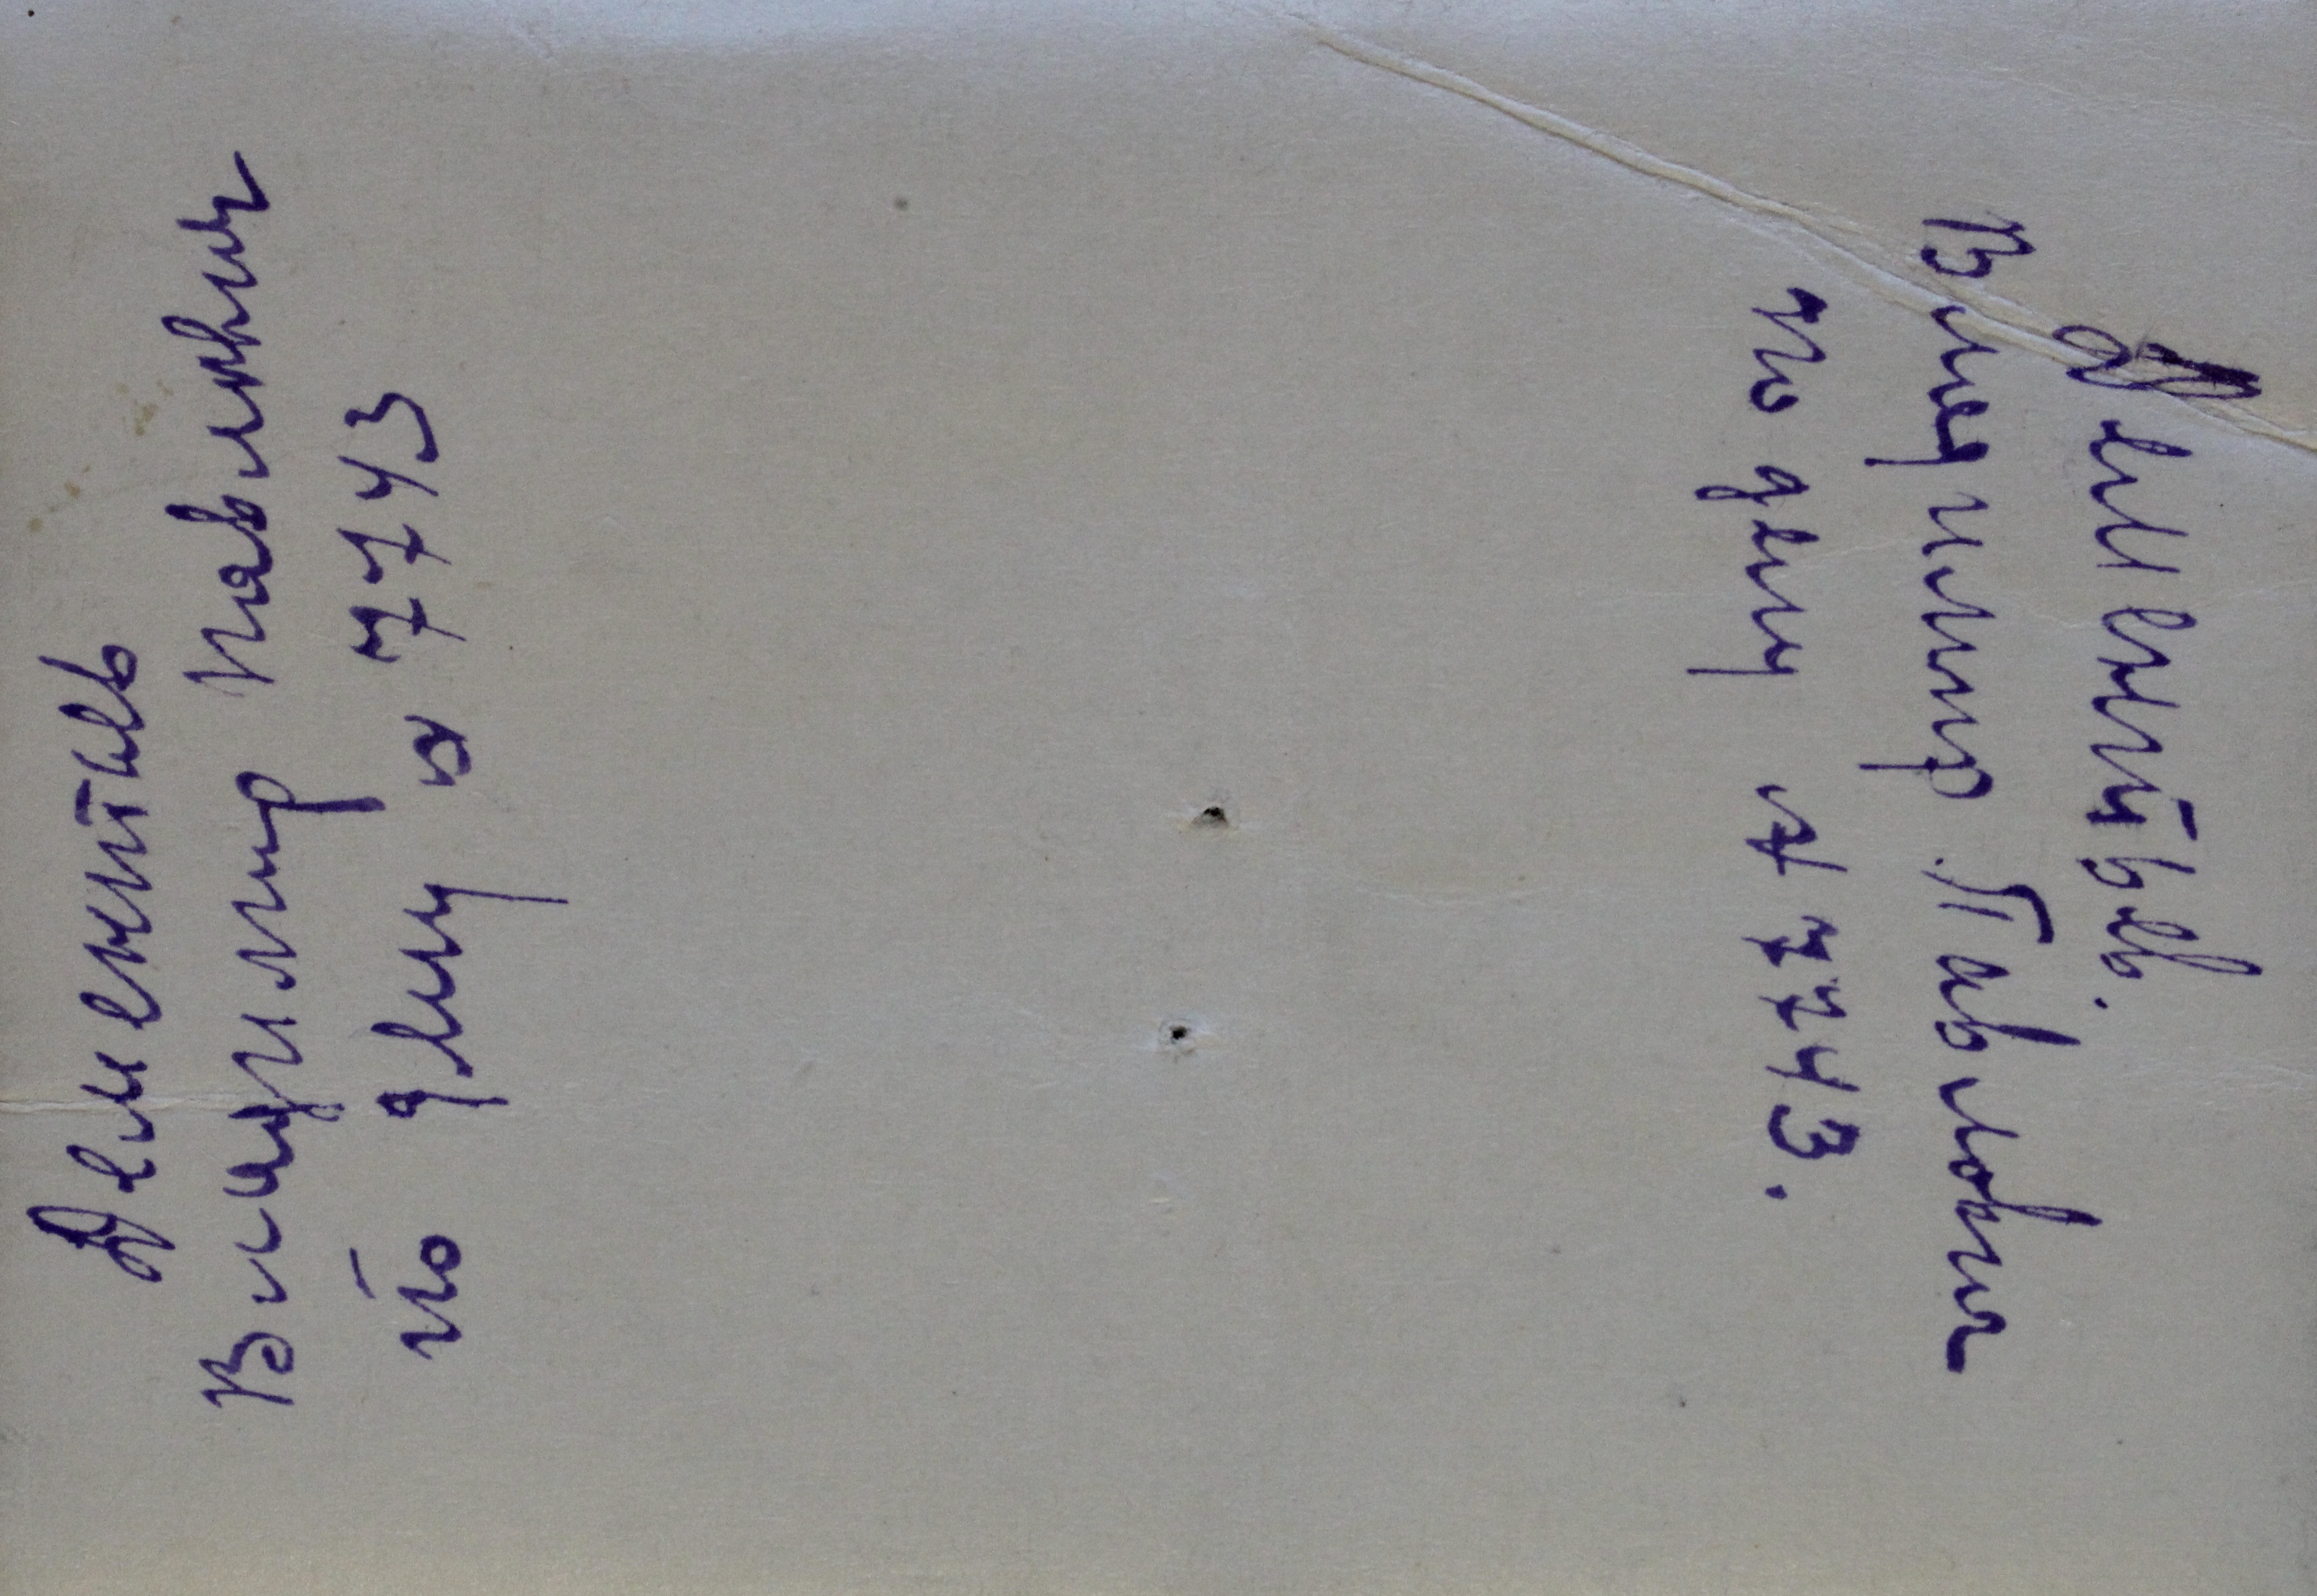 Дементьев
Владимир Павлович
по делу № 7743
Дементьев.
Владимир Павлович
по делу № 7743.